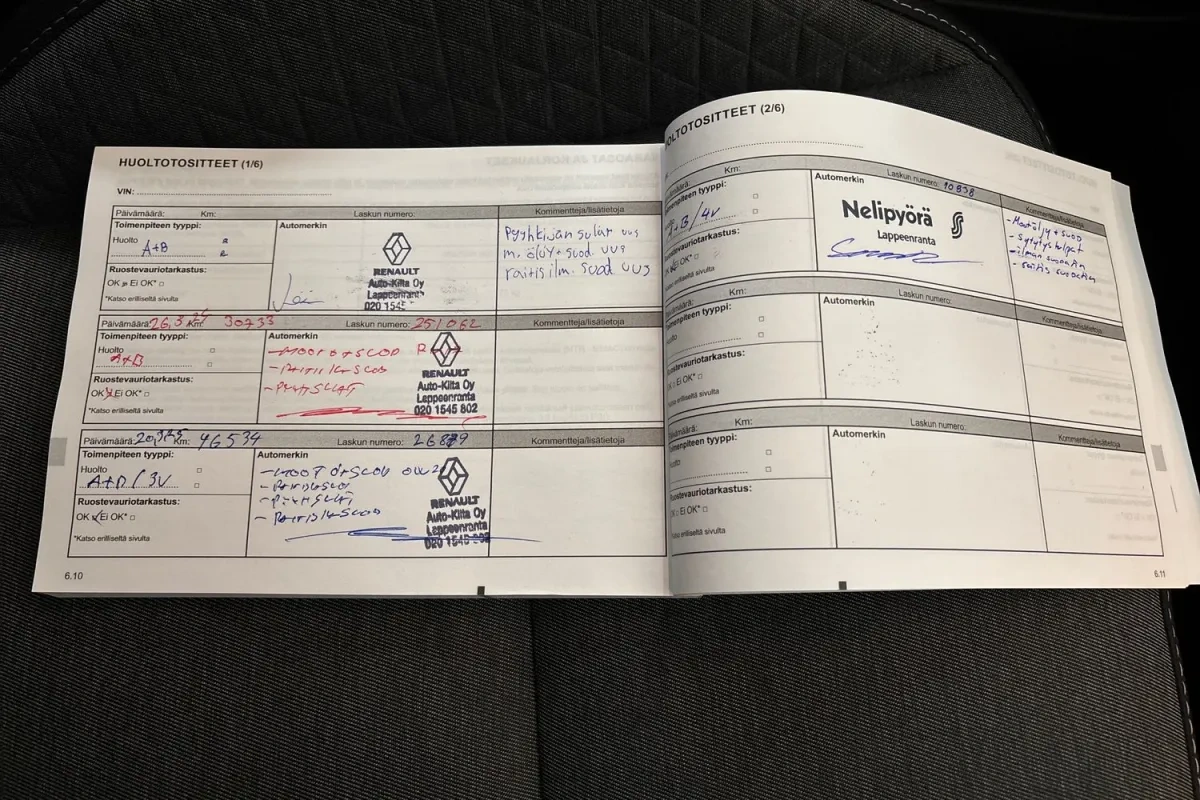 HUOLTOTOSITTEET (1/6)
VIN:
Päivämäärä: Km: Laskun numero: Kommentteja/lisätietoja
Toimenpiteen tyyppi:
Huolto
A+B
Ruostevauriotarkastus:
OK Ei OK*
*Katso erilliseltä sivulta
Automerkin
RENAULT
Auto-Kilta Oy
Lappeenranta
020 1545
Pyyhkijän sulat uus
m. öljy+suod. uus
raitis ilm. suod uus
Päivämäärä: Km: 30733 Laskun numero: 251062 Kommentteja/lisätietoja
Toimenpiteen tyyppi:
Huolto
A+B
Ruostevauriotarkastus:
OK Ei OK*
*Katso erilliseltä sivulta
Automerkin
RENAULT
Auto-Kilta Oy
Lappeenranta
020 1545 802
Päivämäärä: Km: 46534 Laskun numero: Kommentteja/lisätietoja
Toimenpiteen tyyppi:
Huolto
Ruostevauriotarkastus:
OK Ei OK*
*Katso erilliseltä sivulta
Automerkin
RENAULT
Auto-Kilta Oy
Lappeenranta
020 1545 802
6.10
HUOLTOTOSITTEET (2/6)
Km: Laskun numero: 10838 Kommentteja/lisätietoja
Toimenpiteen tyyppi:
A+B/4V
Ruostevauriotarkastus:
OK Ei OK*
*Katso erilliseltä sivulta
Automerkin
Nelipyörä
Lappeenranta
- Moottöljy+suod
- Sytytystulpat
Päivämäärä: Km: Laskun numero: Kommentteja/lisätietoja
Toimenpiteen tyyppi:
Huolto
Ruostevauriotarkastus:
OK Ei OK*
*Katso erilliseltä sivulta
Automerkin
Päivämäärä: Km: Laskun numero: Kommentteja/lisätietoja
Toimenpiteen tyyppi:
Huolto
Ruostevauriotarkastus:
OK Ei OK*
*Katso erilliseltä sivulta
Automerkin
6.11